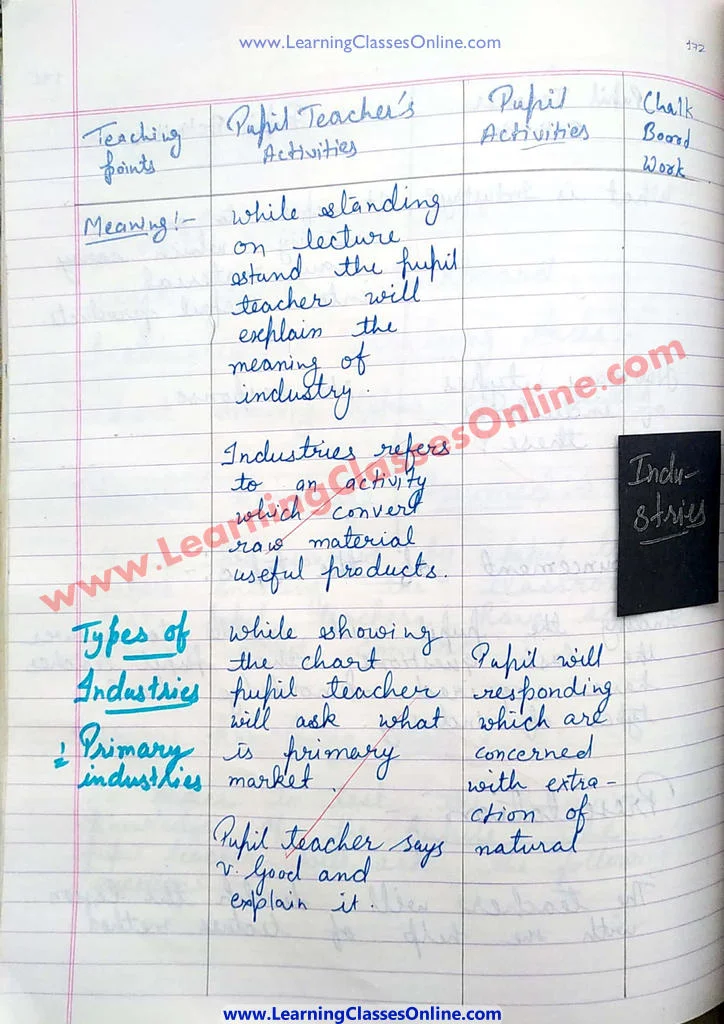 www.LearningClassesOnline.com
172
Teaching
points
Pupil Teacher's
Activities
Pupil
Activities
Chalk
Board
Work
Meaning:-
while standing
on lecture
stand the pupil
teacher will
explain the
meaning of
industry.
Industries refers
to an activity
which convert
raw material
useful products.
Indu-
stries
www.LearningClassesOnline.com
Types of
Industries
Primary
industries
while showing
the chart
pupil teacher
will ask what
is primary
market.
Pupil teacher says
v. Good and
explain it.
Pupil will
responding
which are
concerned
with extra-
ction of
natural
www.LearningClassesOnline.com